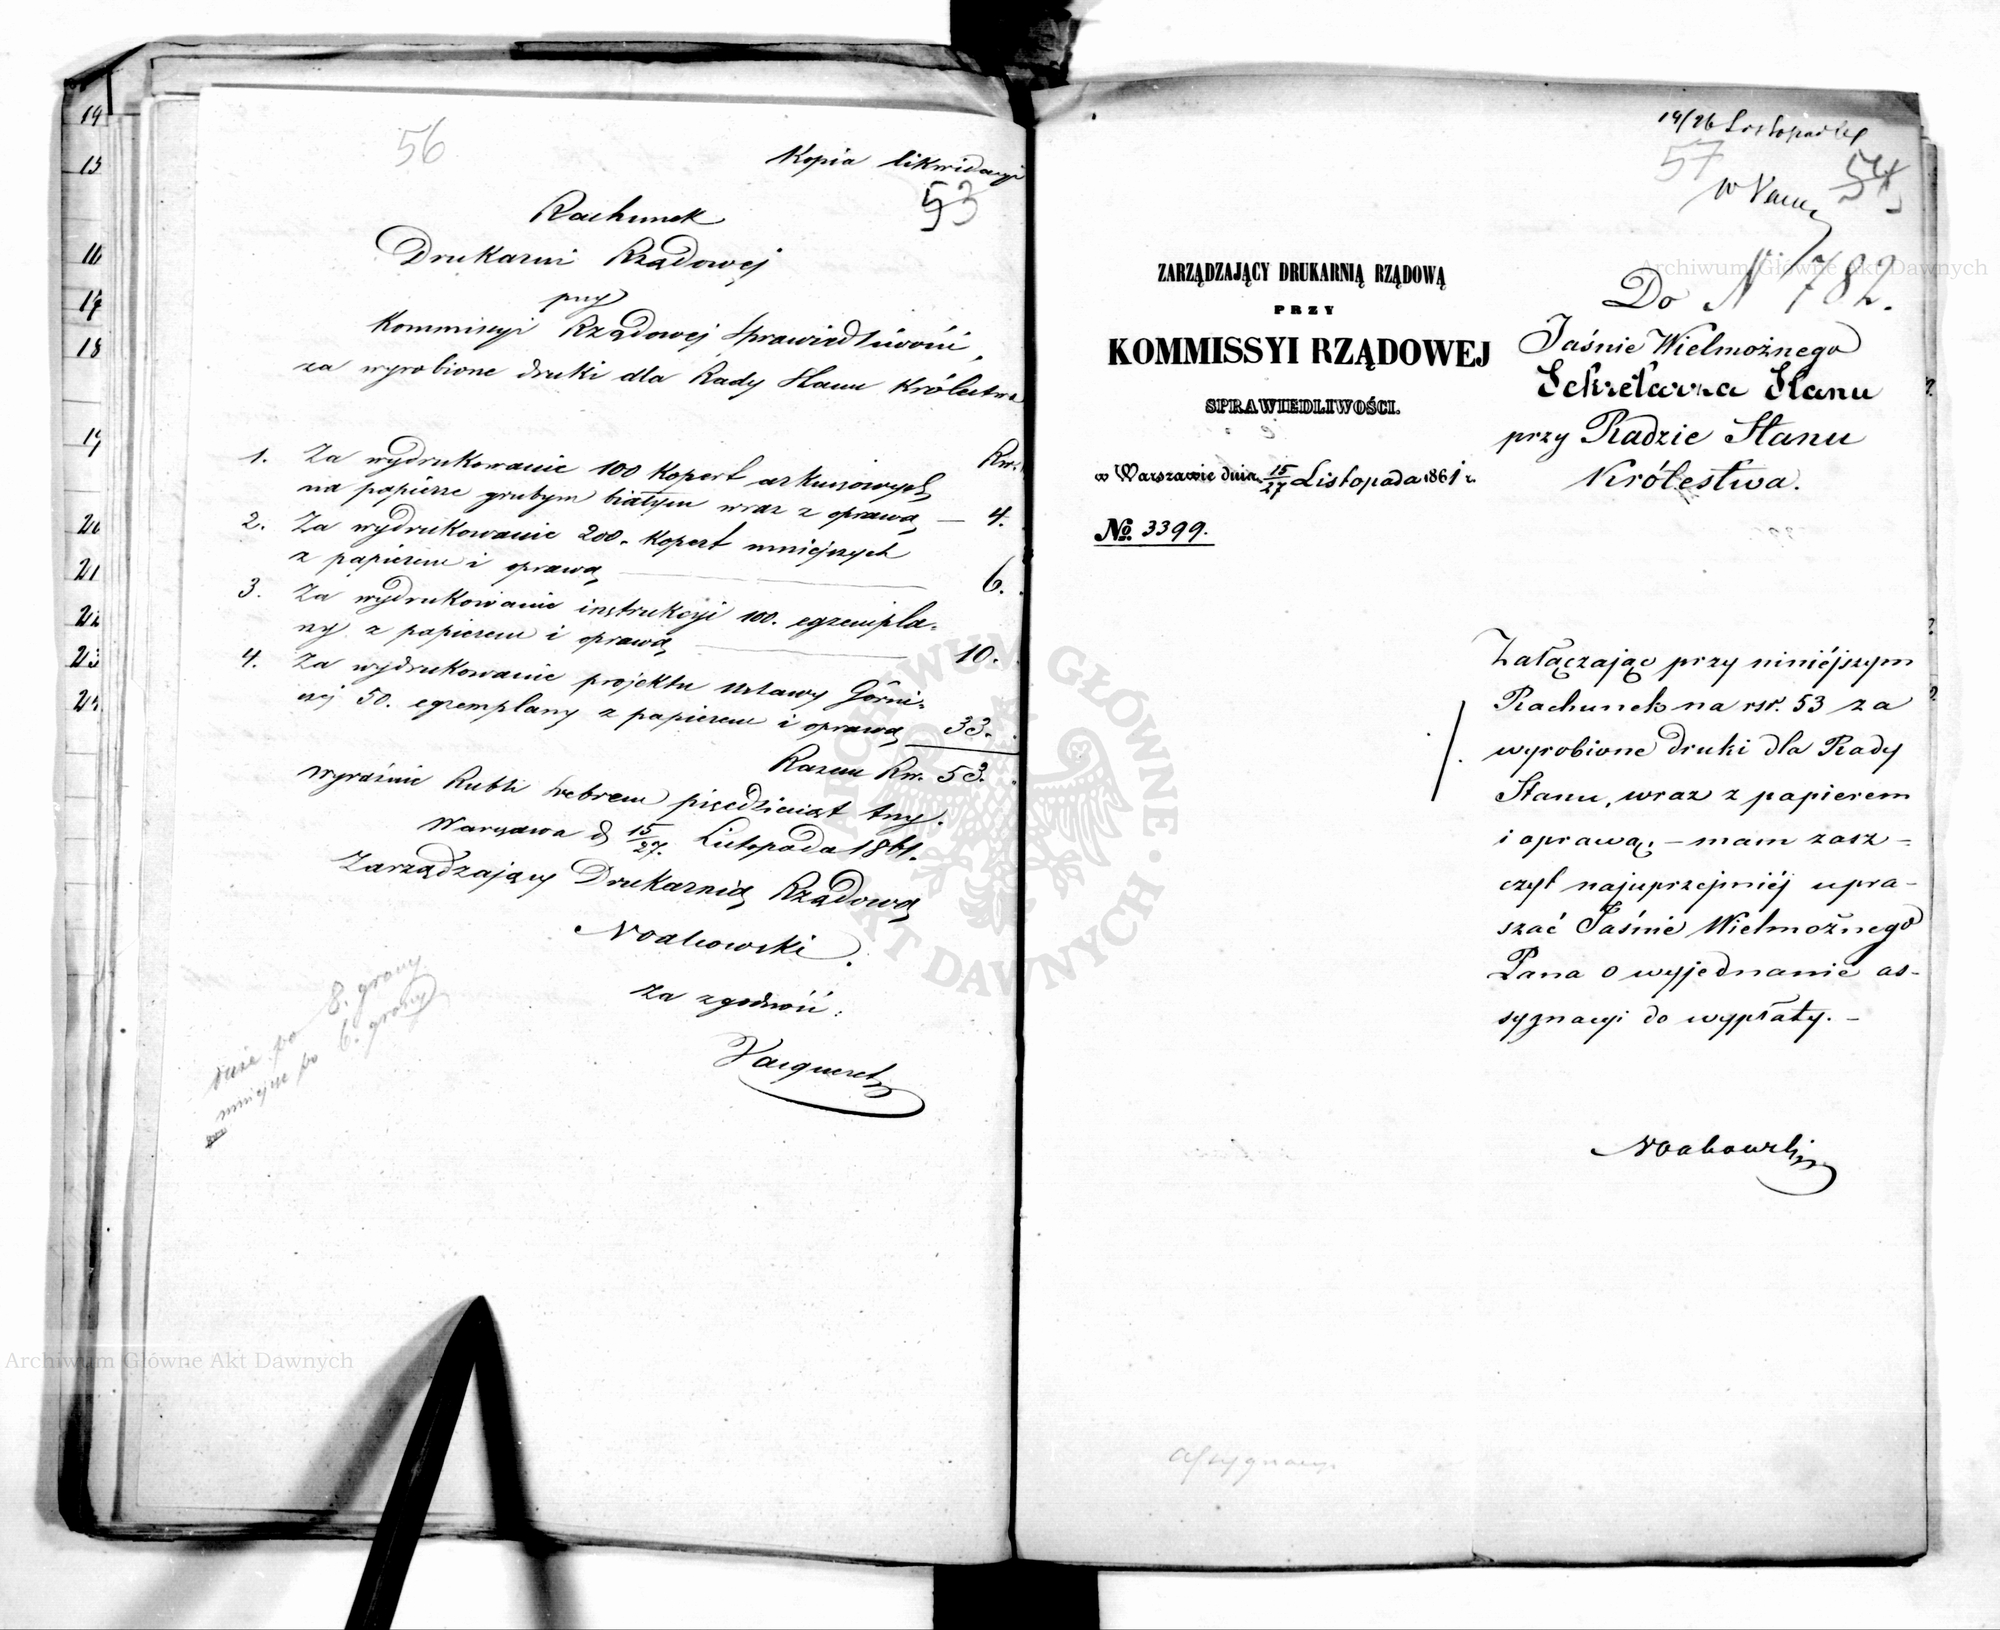 14
15
16
17
18
19
20
21
22
23
24
56
Kopia likwidacyi
53
Rachunek
Drukarni Rządowej
przy
Kommissyi Rządowej Sprawiedliwości,
za wyrobione druki dla Rady Stanu Królestwa
Rsr.
1. Za wydrukowanie 100 Kopert arkuszowych
na papierze grubym białym wraz z oprawą — 4.
2. Za wydrukowanie 200. Kopert mniejszych
z papierem i oprawą 6.
3. Za wydrukowanie instrukcyi 100. egzempla-
rzy z papierem i oprawą 10.
4. Za wydrukowanie projektu Ustawy Górni-
czej 50. egzemplarzy z papierem i oprawą 33.
Razem Rsr. 53.
wyraźnie Rubli srebrem pięćdziesiąt trzy.
Warszawa d. 15/27. Listopada 1861.
Zarządzający Drukarnią Rządową
Noakowski.
Za zgodność:
Vacqueret
duże po 8. groszy
mniejsze po 6. groszy
14/26 Listopada 61
57
54
N 782.
ZARZĄDZAJĄCY DRUKARNIĄ RZĄDOWĄ
PRZY
KOMMISSYI RZĄDOWEJ
SPRAWIEDLIWOŚCI.
w Warszawie dnia 15/27 Listopada 1861 r.
No. 3399.
Do
Jaśnie Wielmożnego
Sekretarza Stanu
przy Radzie Stanu
Królestwa.
Załączając przy niniéjszym
Rachunek na rsr. 53 za
wyrobione druki dla Rady
Stanu, wraz z papierem
i oprawą, — mam zasz-
czyt najuprzejmiéj upra-
szać Jaśnie Wielmożnego
Pana o wyjednanie as-
sygnacyi do wypłaty. —
Noakowski
Assygnacya
Archiwum Główne Akt Dawnych
Archiwum Główne Akt Dawnych
ARCHIWUM GŁÓWNE AKT DAWNYCH